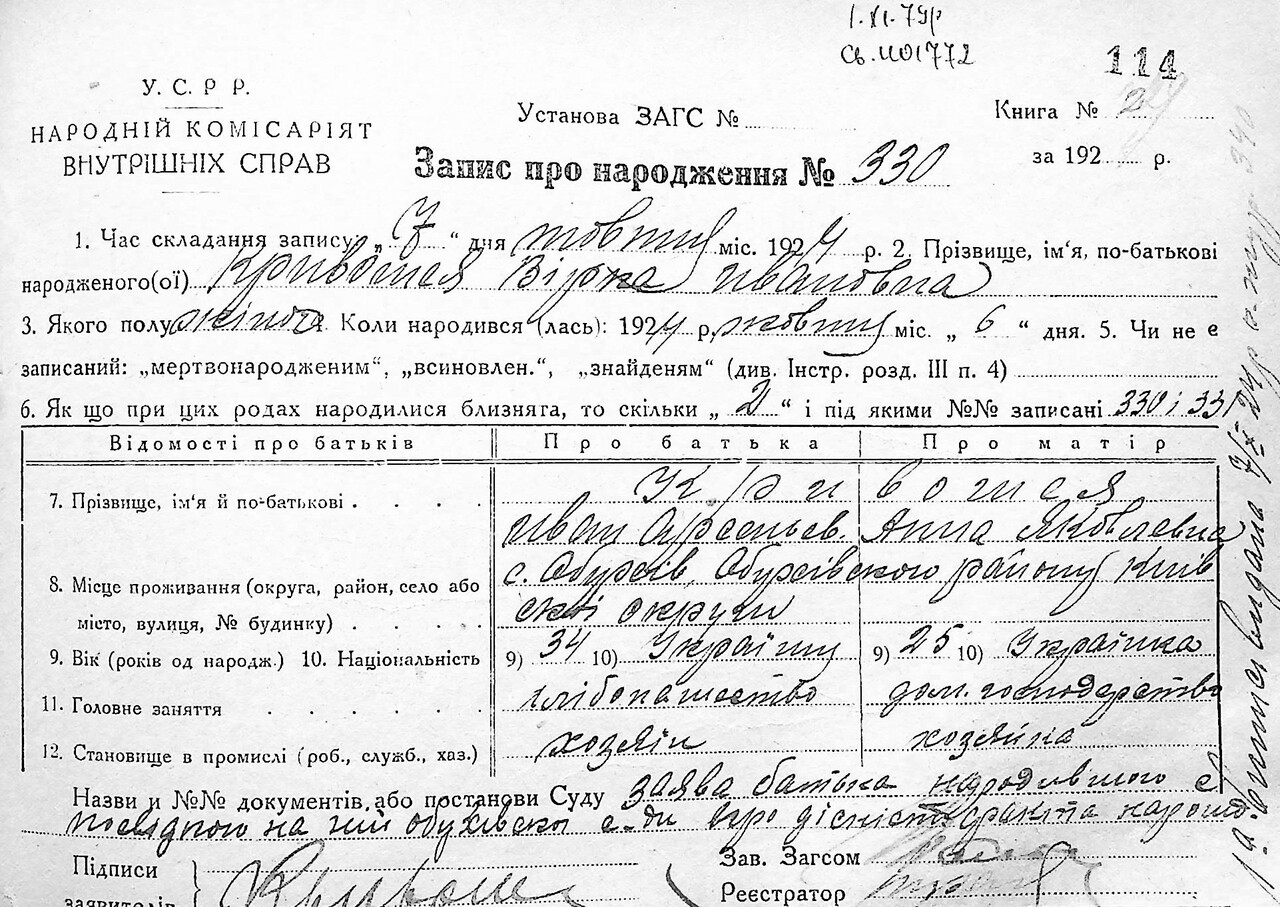 1.XI.74р
Св. ІІОІ772
114
У. С. Р Р.
НАРОДНІЙ КОМІСАРІЯТ
ВНУТРІШНІХ СПРАВ
Установа ЗАГС №
Книга № 2
за 192 р.
Запис про народження № 330
1. Час складання запису: „ 7 “ дня жовтня міс. 1924 р. 2. Прізвище, ім‘я, по-батькові
народженого(ої) Вірка Ивановна
3. Якого полу жіноч. Коли народився (лась): 1924 р. жовтня міс. „ 6 “ дня. 5. Чи не є
записаний: „мертвонародженим“, „всиновлен.“, „знайденям“ (див. Інстр. розд. III п. 4)
6. Як що при цих родах народилися близняга, то скільки „ 2 “ і під якими №№ записані 330 і 331
Відомості про батьків Про батька Про матір
7. Прізвище, ім‘я й по-батькові . . . .
Иван Арсеньев. Анна Яковлевна
8. Місце проживання (округа, район, село або
місто, вулиця, № будинку) . . . .
с. Обухів, Обухівского району Київ
ской округи
9. Вік (років од народж.) 10. Національність 9) 34 10) Українец 9) 25 10) Українка
11. Головне заняття . . . . . . хлібопашество дом. господарство
12. Становище в промислі (роб., служб., хаз.) хозяїн хозяйка
Назви и №№ документів або постанови Суду заява батька народившого с
на ній обухівскої с-ди про дісність факта народ
Підписи
заявителів
Зав. Загсом
Реестратор
виписъ видана 7/X 24 р